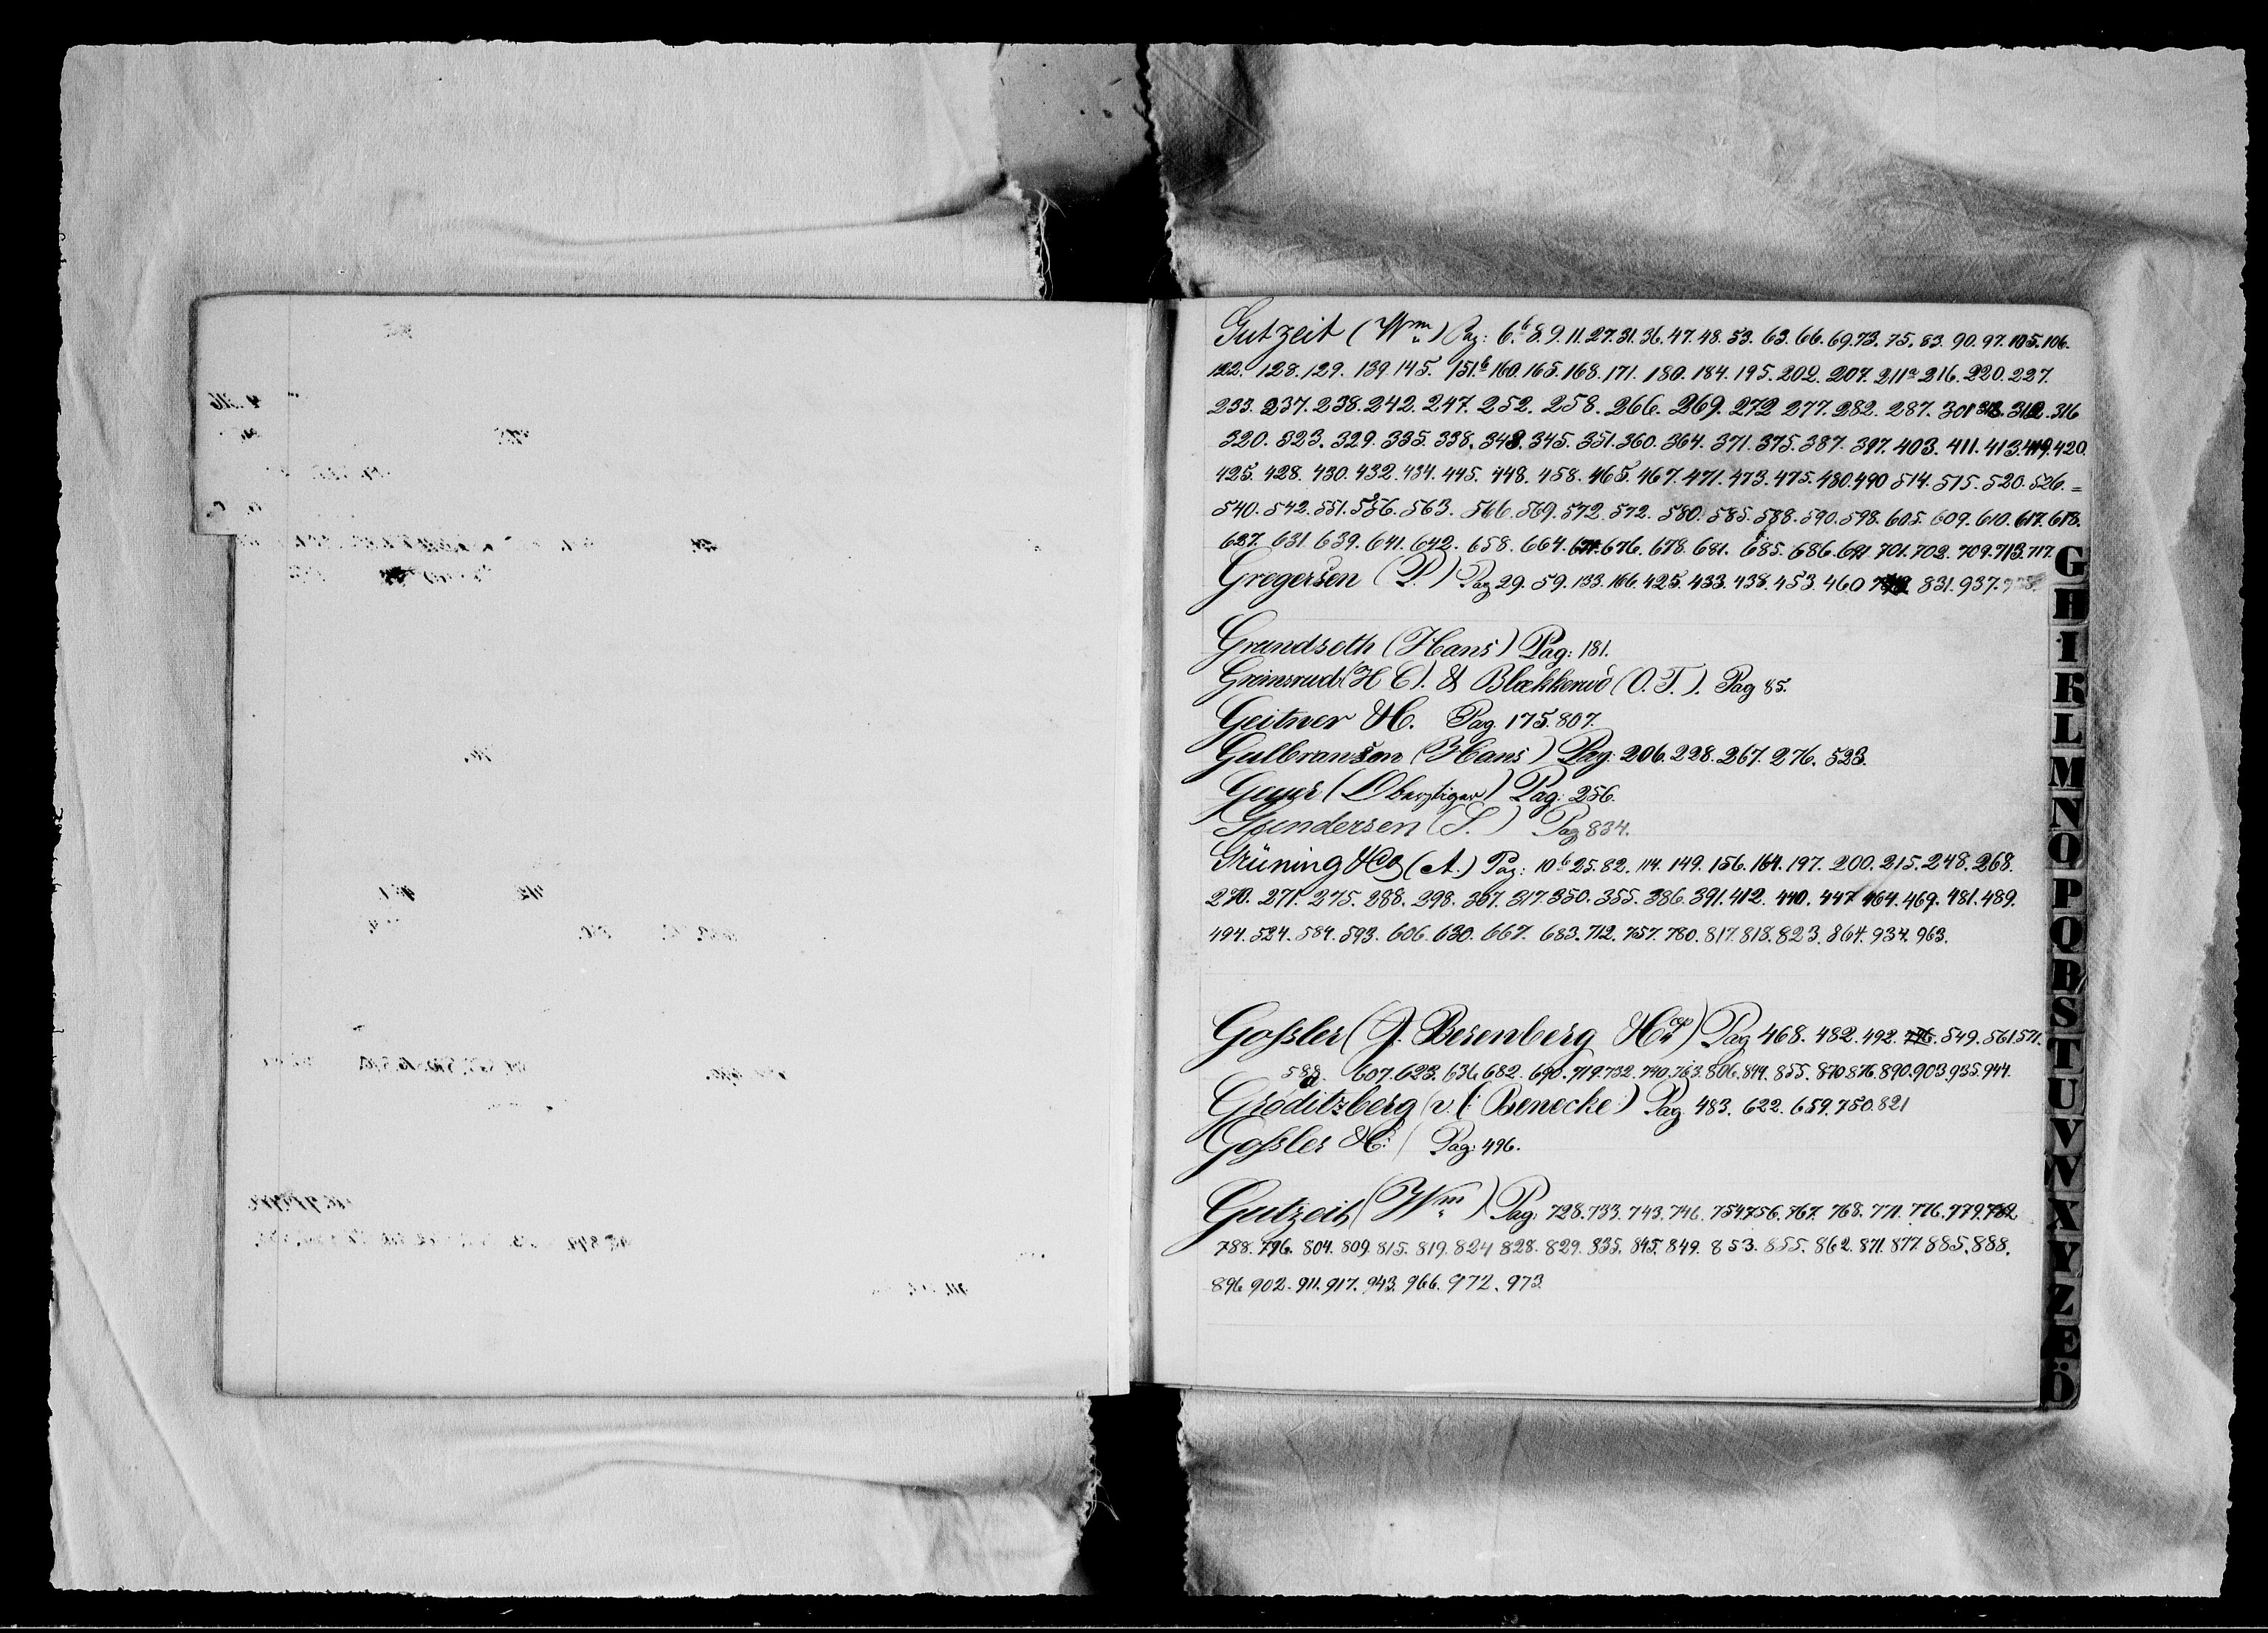 Gutzeit (Wm) Pag: 6.b 8. 9. 11. 27. 31. 36. 47. 48. 53. 63. 66. 69. 73. 75. 83. 90. 97. 105. 106.
122. 128. 129. 139. 145. 151.b 160. 165. 168. 171. 180. 184. 195. 202. 207. 211a 216. 220. 227.
233. 237. 238. 242. 247. 252. 258. 266. 269. 272 277. 282. 287. 301 312. 316
320. 323. 329. 335. 338. 343. 345. 351. 360. 364. 371. 375. 387. 397. 403. 411. 413. 419. 420.
425. 428. 430. 432. 434. 445. 448. 458. 465. 467. 471. 473. 475. 480. 490 514. 515. 520. 526. =
540. 542. 551. 556. 563. 566. 569. 572. 572. 580. 585. 588. 590. 598. 605. 609. 610. 617. 618.
627. 631. 639. 641. 642. 658. 664. 676. 678. 681. 685. 686. 691 701. 702. 709. 713. 717.
Gregersen (P.) Pag 29. 59. 133. 166. 425. 433. 438. 453. 460 831. 937.
Grundseth (Hans) Pag: 181.
Grimsrud (H C). & Blakkerud (O. T.). Pag 85.
Geitner H. Pag. 175. 807.
Gulbransen (Hans) Pag: 206. 228. 267. 276. 523.
Geyer (Oberstiger) Pag: 256.
Gundersen (S.) Pag 834.
Grüning & Co (A.) Pag: 10b 25. 82. 114. 149. 156. 164. 197. 200. 215. 248. 268.
270. 271. 275. 288. 298. 307. 317. 350. 355. 386. 391. 412. 440. 447 464. 469. 481. 489.
494. 524. 584. 593. 606. 630. 667. 683. 712. 757. 780. 817. 818. 823. 864. 934. 963.
Gossler (J. Berenberg & Co) Pag 468. 482. 492. 549. 561. 571.
588. 607. 623. 636 682. 690. 719. 732. 740. 763. 806. 844. 855. 870 876. 890. 903. 935. 944.
Gröditzberg (v. (: Benecke:) Pag 483. 622. 659. 750. 821
Gossler H: Pag: 496.
Gutzeit (Wm) Pag: 728. 733. 743. 746. 754 756. 767. 768. 771. 776. 779. 782
788. 796. 804. 809. 815. 819. 824 828. 829. 835. 845. 849. 853. 855. 862. 871. 877. 885. 888.
896 902. 911. 917. 943. 966. 972. 973.
G
H
I
K
L
M
N
O
P
Q
R
S
T
U
V
W
X
Y
Z
Æ
Ö